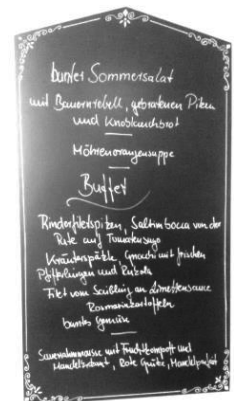 bunter Sommersalat
mit Bauernrebell, gebratenen Pilzen
und Knoblauchbrot
Möhrenorangensuppe
Buffet
Rinderfiletspitzen, Saltimbocca von der
Pute auf Tomatensugo
Kräuterspätzle, Gnocchi mit frischen
Pfifferlingen und Rukola
Filet vom Saibling an Limettensauce
Rosmarinkartoffeln
buntes Gemüse
Sauerrahmmousse mit Fruchtkompott und
Rote Grütze, Mandelparfait